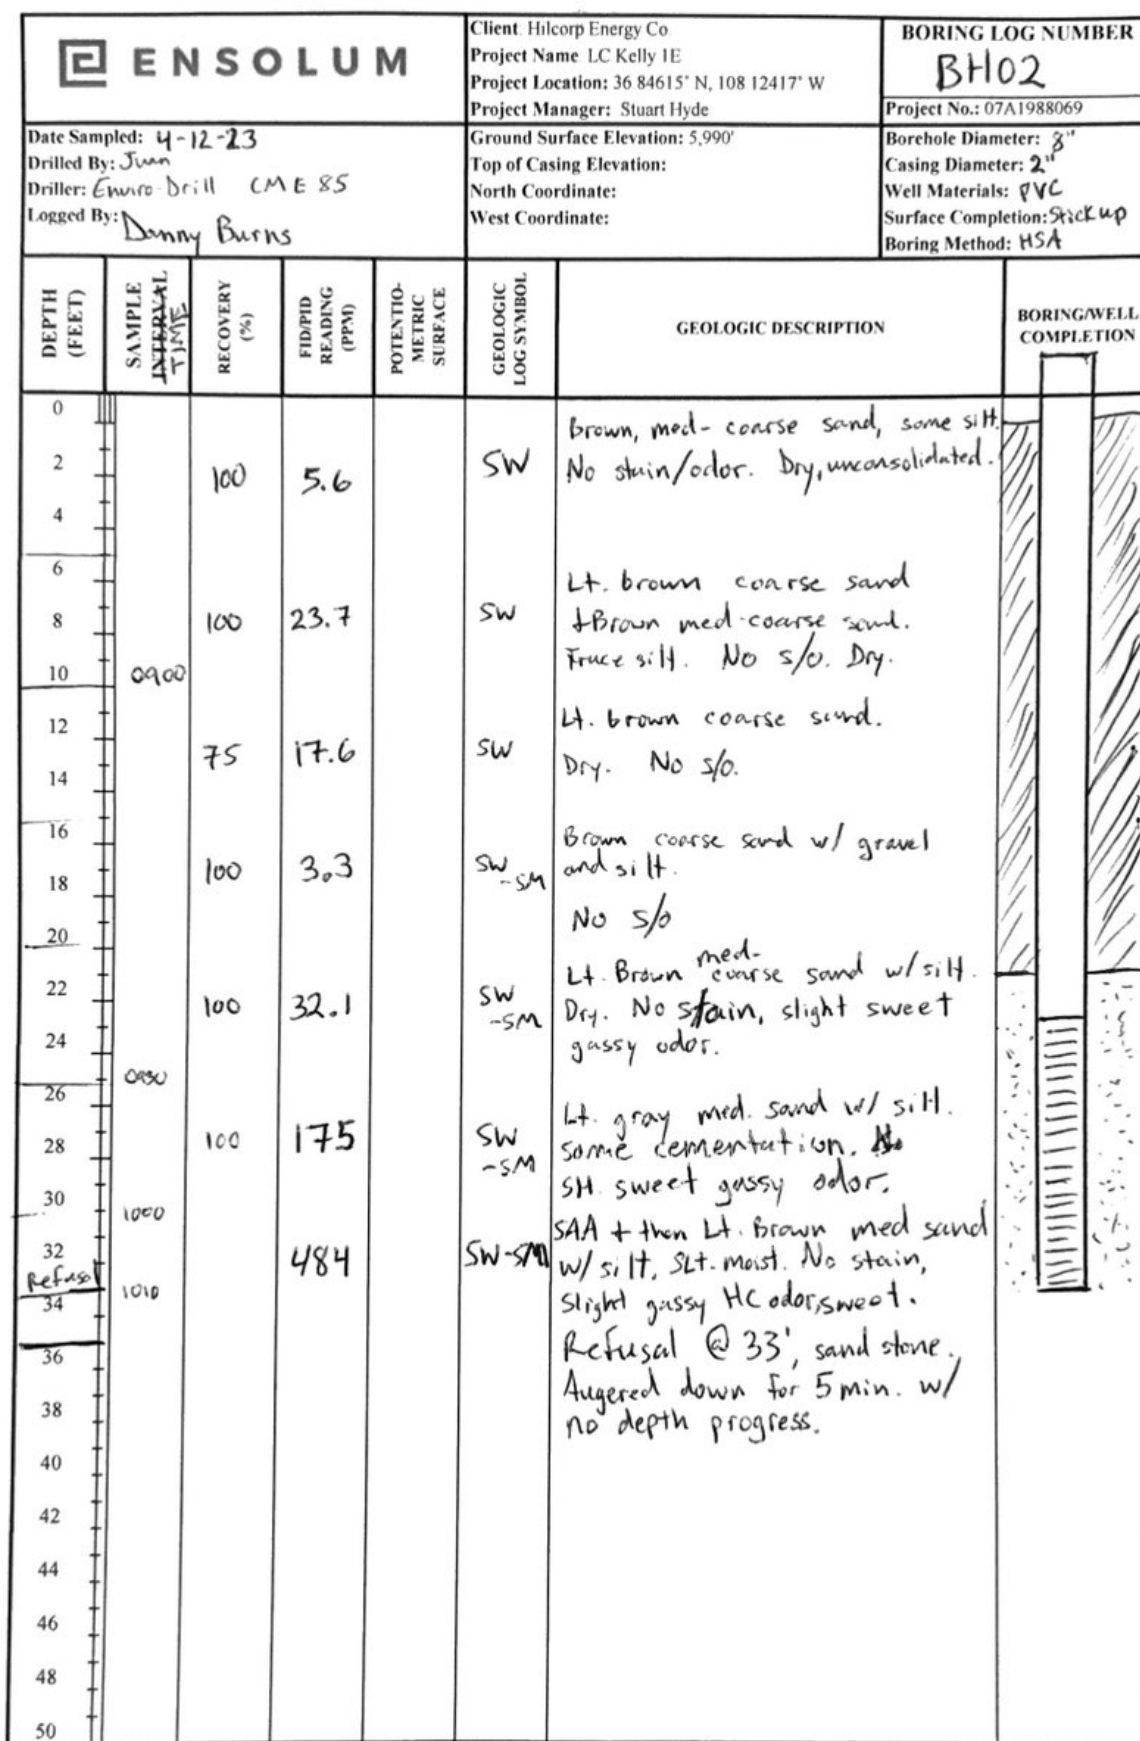 ENSOLUM
Client: Hilcorp Energy Co
Project Name LC Kelly 1E
Project Location: 36 84615° N, 108 12417° W
Project Manager: Stuart Hyde
BORING LOG NUMBER
BH02
Project No.: 07A1988069
Date Sampled: 4-12-23
Drilled By: Juan
Driller: Enviro-Drill CME 85
Logged By: Danny Burns
Ground Surface Elevation: 5,990'
Top of Casing Elevation:
North Coordinate:
West Coordinate:
Borehole Diameter: 8"
Casing Diameter: 2"
Well Materials: PVC
Surface Completion: Stick up
Boring Method: HSA
DEPTH
(FEET)
SAMPLE
INTERVAL
TIME
RECOVERY
(%)
FID/PID
READING
(PPM)
POTENTIO-
METRIC
SURFACE
GEOLOGIC
LOG SYMBOL
GEOLOGIC DESCRIPTION
BORING/WELL
COMPLETION
0
Brown, med-coarse sand, some silt.
2 100 5.6 SW No stain/odor. Dry, unconsolidated.
4
6
Lt. brown coarse sand
8 100 23.7 SW +Brown med-coarse sand.
10 0900 Trace silt. No s/o. Dry.
12 Lt. brown coarse sand.
75 17.6 SW Dry. No s/o.
14
16 Brown coarse sand w/ gravel
18 100 3.3 SW-SM and silt.
No s/o
20
med-
Lt. Brown coarse sand w/ silt.
22 100 32.1 SW-SM Dry. No stain, slight sweet
24 gassy odor.
0930
26 Lt. gray med. sand w/ silt.
28 100 175 SW-SM some cementation. No
Slt. sweet gassy odor.
30 1000 SAA + then Lt. Brown med sand
32 484 SW-SM w/ silt, Slt. moist. No stain,
Refusal
34 1010 Slight gassy HC odor, sweet.
Refusal @ 33', sand stone.
36 Augered down for 5 min. w/
38 no depth progress.
40
42
44
46
48
50